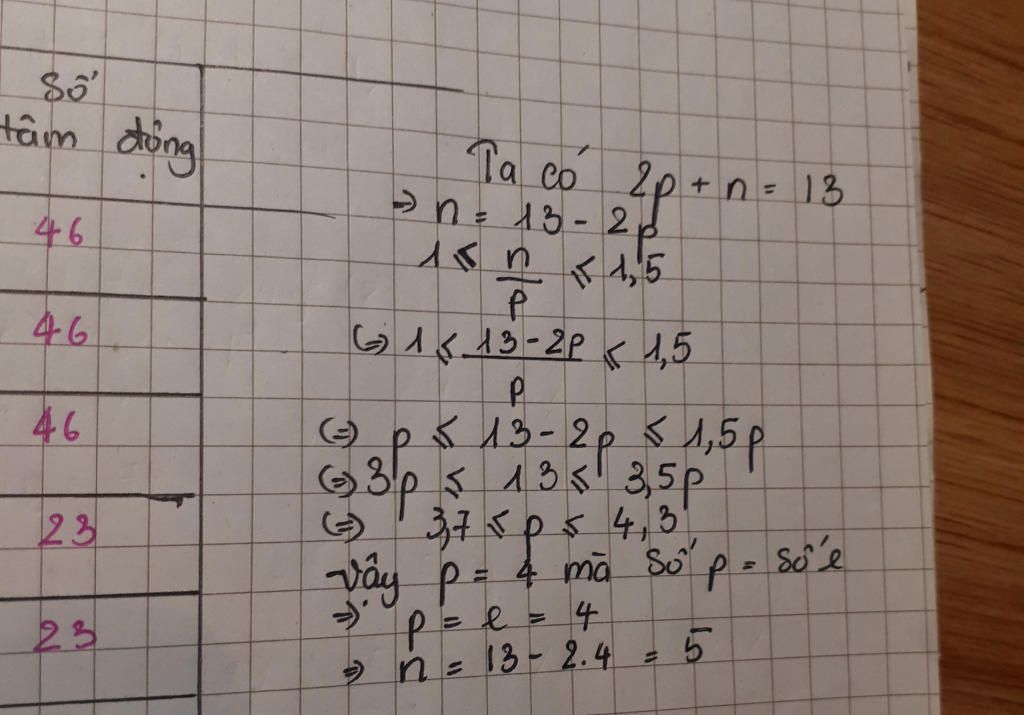 Số
tâm động
46
46
46
23
23
Ta có 2p + n = 13
→ n = 13 - 2p
1 ≤ n/p ≤ 1,5
(=) 1 ≤ 13-2p/p ≤ 1,5
(=) p ≤ 13 - 2p ≤ 1,5p
(=) 3p ≤ 13 ≤ 3,5p
(=) 3,7 ≤ p ≤ 4,3
vậy p = 4 mà số p = số e
⇒ p = e = 4
⇒ n = 13 - 2.4 = 5